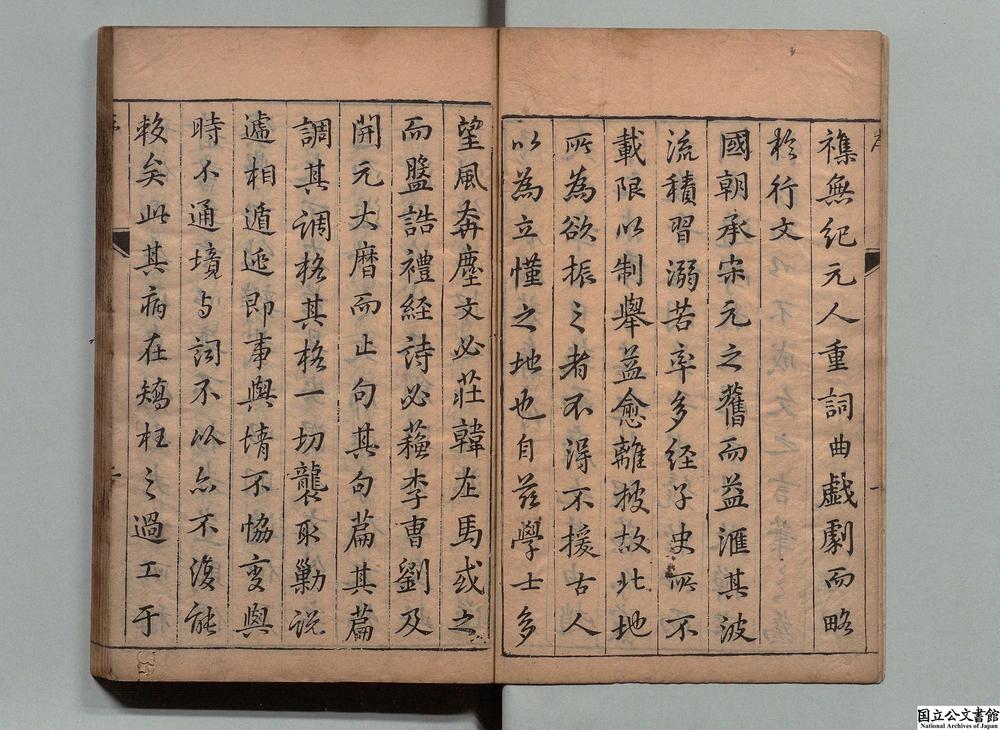 襍無紀元人重詞曲戲劇而略
於行文
國朝承宋元之舊而益滙其波
流積習溺苦率多經子史所不
載限以制舉益愈離披故北地
所為欲振之者不得不援古人
以為立懂之地也自茲學士多
望風奔塵文必莊韓左馬或之
而盤誥禮經詩必蘓李曹劉及
開元大曆而止句其句篇其篇
調其調格其格一切襲取勦說
遞相遁逃即事與情不恊变與
時不通境与詞不以亦不復能
敕矣此其病在矯枉之過工于
国立公文書館
National Archives of Japan